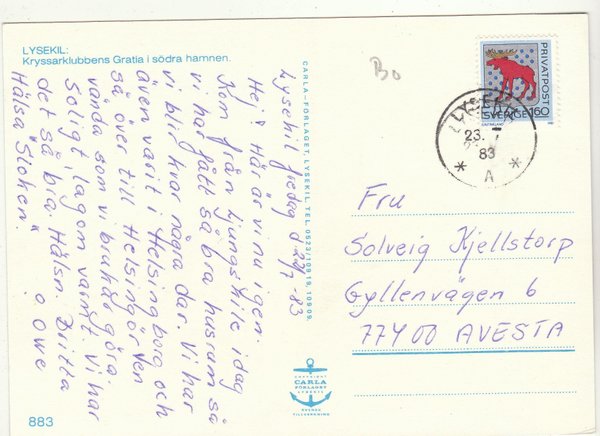 LYSEKIL:
Kryssarklubbens Gratia i södra hamnen.
Lysekil fredag d 22/7 -83
Hej! Här är vi nu igen.
Kom från Ljungskile idag
vi har fått så bra husrum så
vi blir kvar några dar. Vi har
även varit i Helsingborg och
så över till Helsingör. Ven
vända som vi bruhar göra.
Soligt lagom varmt. Vi har
det så bra. Hälsn. Britta
Hälsa "Stoken" o Owe
883
CARLA-FÖRLAGET, LYSEKIL TEL. 0523/109 19, 109 09.
COPYRIGHT
CARLA
FÖRLAGET
LYSEKIL
SVENSK
TILLVERKNING
Bo
PRIVATPOST
SVERIGE 160
LYSEKIL
23. 7
83
* A *
Fru
Solveig Kjellstorp
Gyllenvägen 6
77400 AVESTA